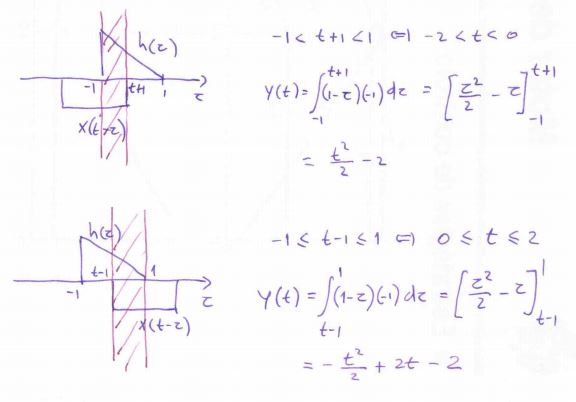 h(τ)
-1 t+1 1 τ
x(t-τ)
-1 < t+1 < 1 ⇔ -2 < t < 0
y(t) = ∫_{-1}^{t+1} (1-τ)(-1) dτ = [τ²/2 - τ]_{-1}^{t+1}
= t²/2 - 2
h(τ)
t-1 1
-1 τ
x(t-τ)
-1 ≤ t-1 ≤ 1 ⇔ 0 ≤ t ≤ 2
y(t) = ∫_{t-1}^{1} (1-τ)(-1) dτ = [τ²/2 - τ]_{t-1}^{1}
= - t²/2 + 2t - 2